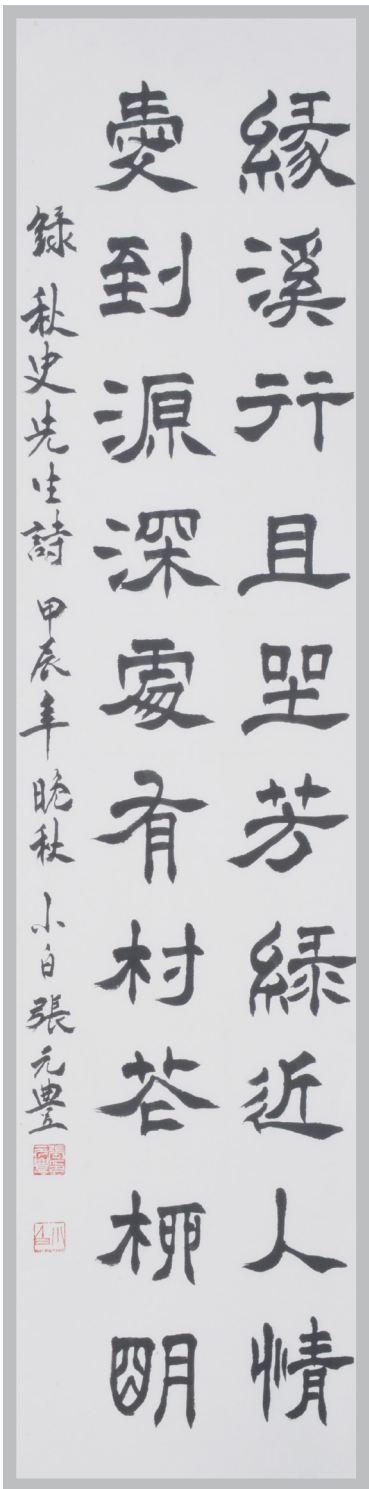 緣溪行且坐芳綠近人情
到源深處有村花柳明
錄 秋史先生詩 甲辰年晚秋 小白張元豊